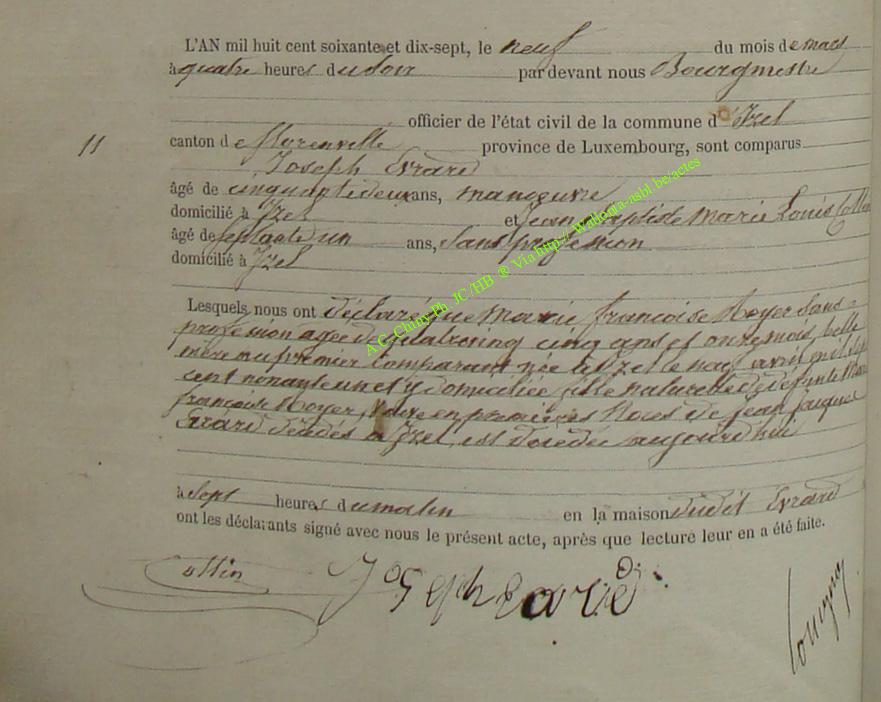 L'AN mil huit cent soixante et dix-sept, le neuf du mois de mars
à quatre heures du soir par devant nous Bourgmestre
officier de l'état civil de la commune d'Izel
11
canton de florenville province de Luxembourg, sont comparus
Joseph Evrard
âgé de cinquante deux ans, manœuvre
domicilié à Izel et Jean Baptiste Marie Louis Collin
âgé de septante un ans, Sans profession
domicilié à Izel
A.G. Chiny Ph JC /HB ® Via http:// Wallonia-asbl.be/actes
Lesquels nous ont déclaré que Marie françoise Noyer Sans
profession agée de quatrevingt cinq ans et onze mois, belle
mère au premier Comparant née à Izel le avril mil sept
cent nonante un et y domiciliée fille naturelle de défunte Marie
françoise Noyer, Veuve en premières Noces de Jean Jacques
Evrard décédés à Izel, est décédée aujourd'hui
à Sept heures du matin en la maison dudit Evrard
ont les déclarants signé avec nous le présent acte, après que lecture leur en a été faite.
Collin Joseph Evard